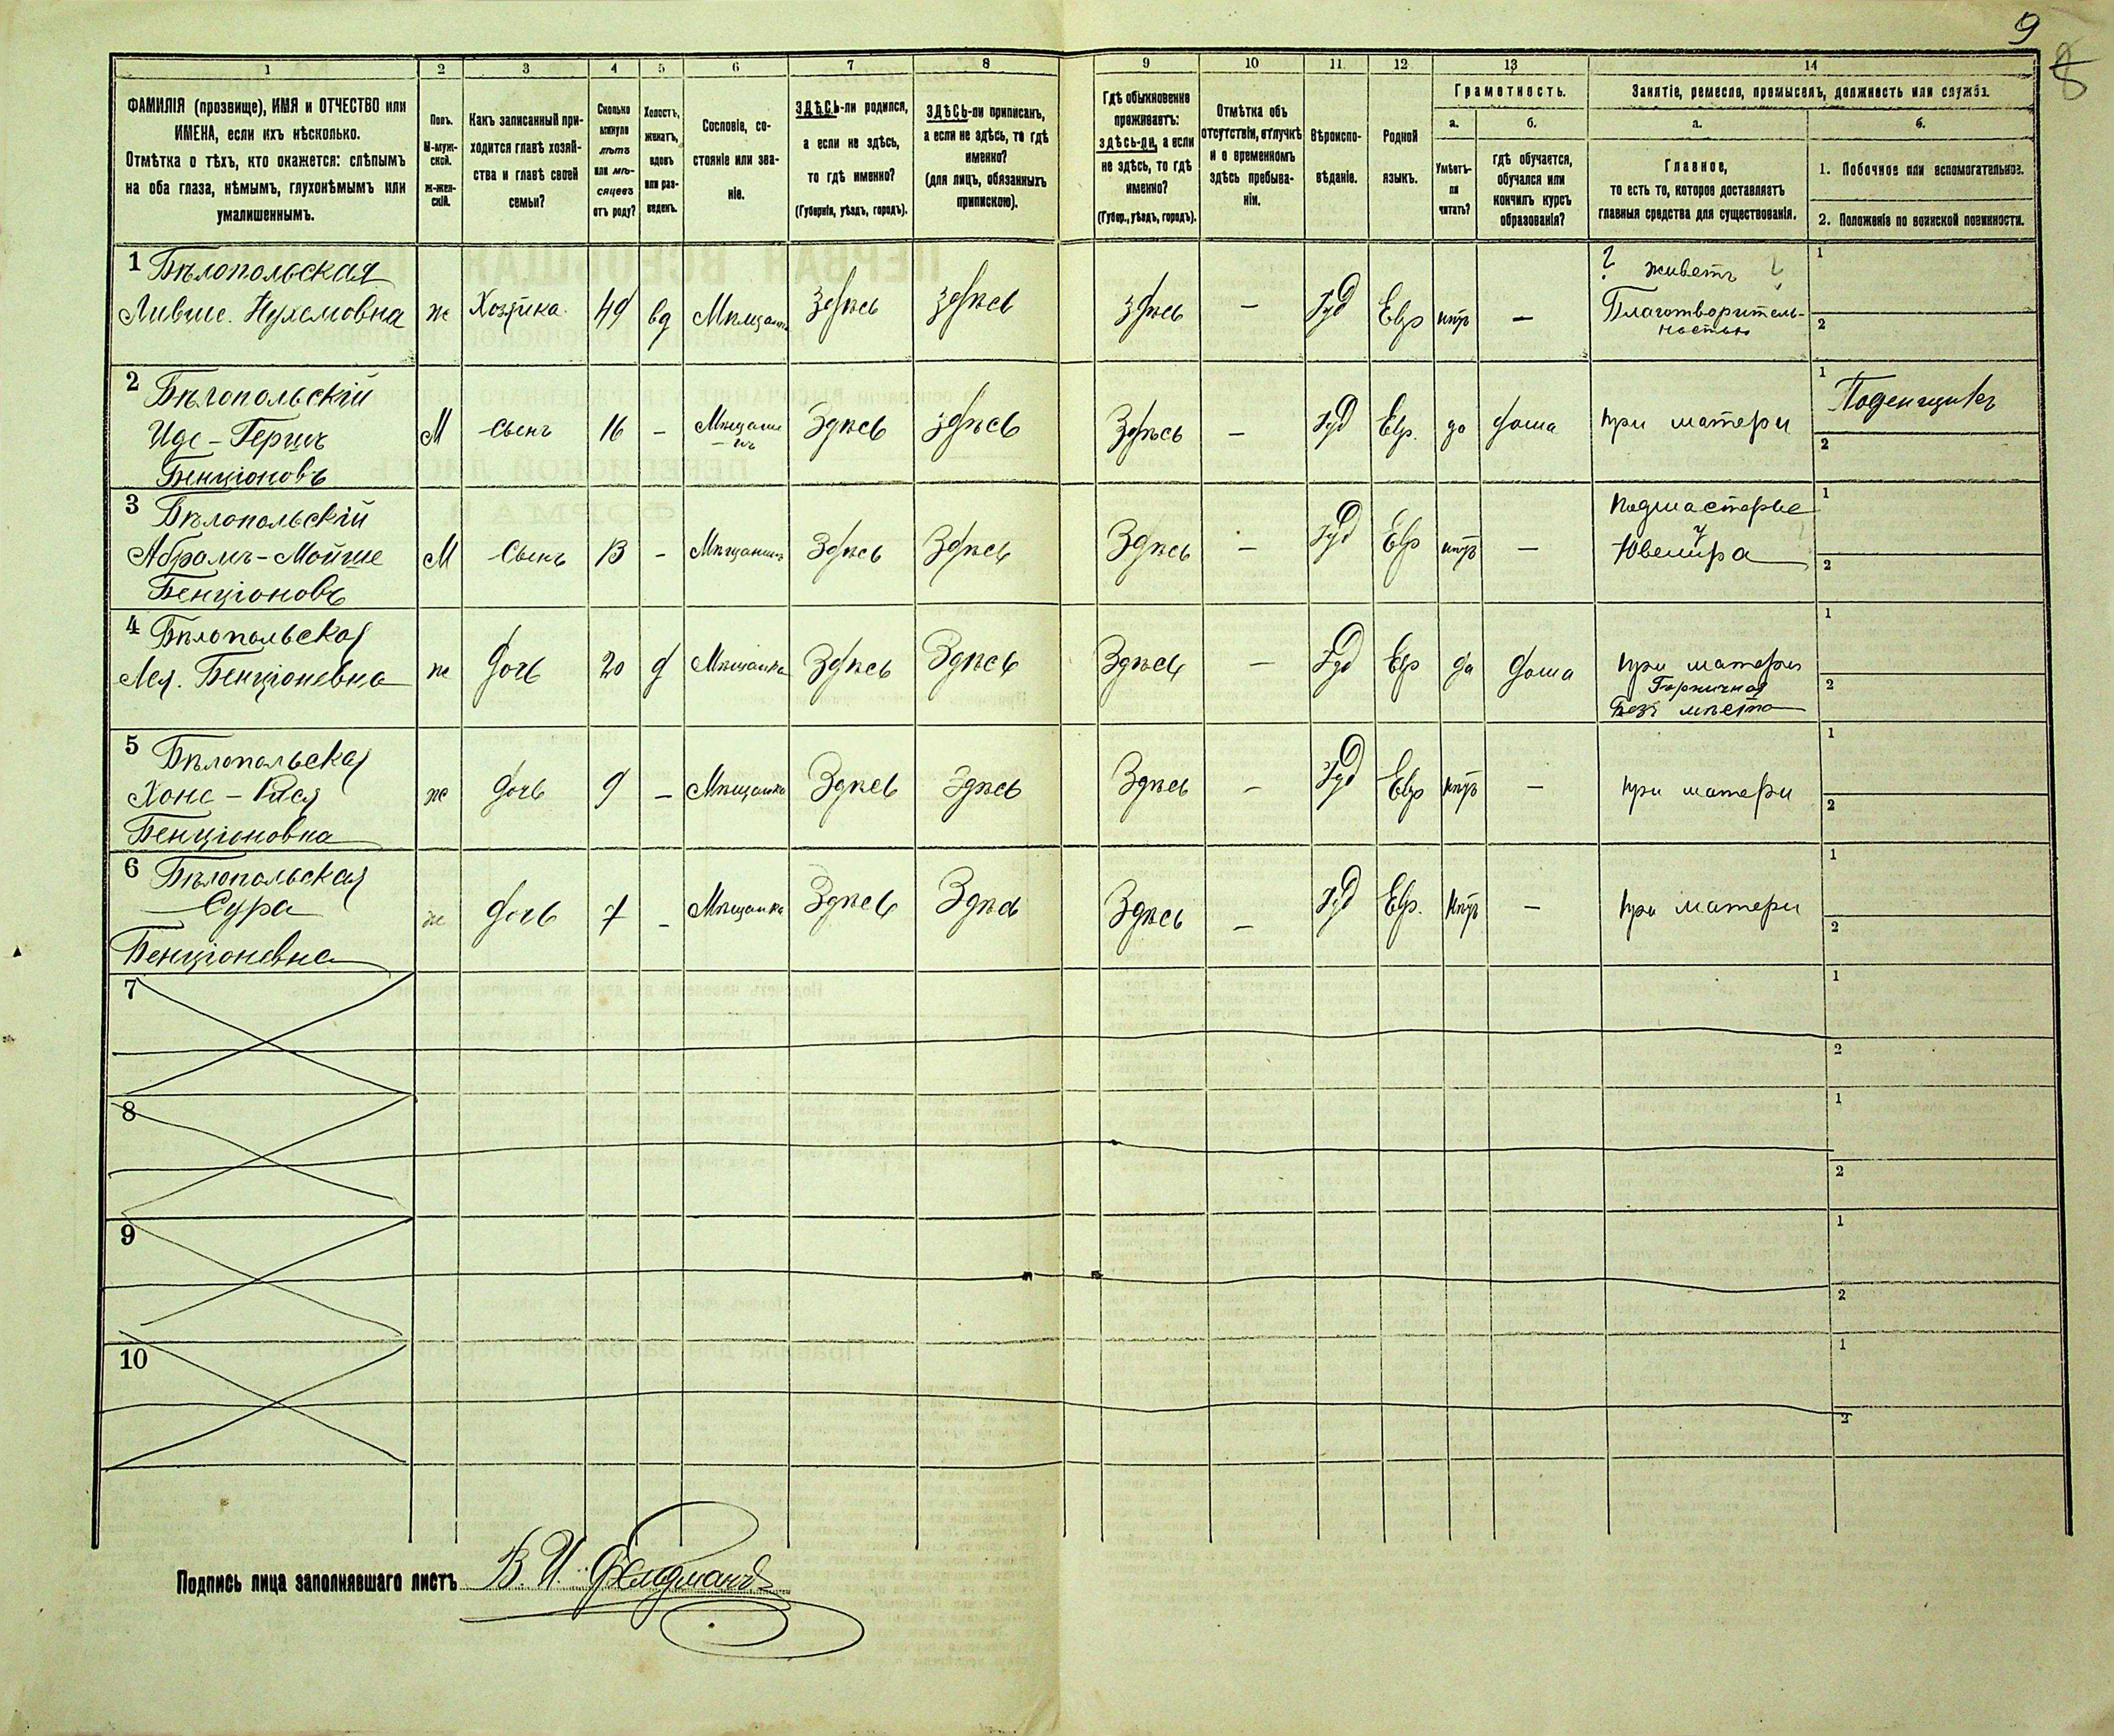 9
8
1
2
3
4
5
6
7
8
9
10
11
12
13
14
ФАМИЛІЯ (прозвище), ИМЯ и ОТЧЕСТВО или
ИМЕНА, если ихъ нѣсколько.
Отмѣтка о тѣхъ, кто окажется: слѣпымъ
на оба глаза, нѣмымъ, глухонѣмымъ или
умалишеннымъ.
Полъ.
М-муж-
ской.
Ж-жен-
скій.
Какъ записанный при-
ходится главѣ хозяй-
ства и главѣ своей
семьи?
Сколько
минуло
лѣтъ
или мѣ-
сяцевъ
отъ роду?
Холостъ,
женатъ,
вдовъ
или раз-
веденъ.
Сословіе, со-
стояніе или зва-
ніе.
ЗДѢСЬ-ли родился,
а если не здѣсь,
то гдѣ именно?
(Губернія, уѣздъ, городъ).
ЗДѢСЬ-ли приписанъ,
а если не здѣсь, то гдѣ
именно?
(для лицъ, обязанныхъ
припискою).
Гдѣ обыкновенно
проживаетъ:
здѣсь-ли, а если
не здѣсь, то гдѣ
именно?
(Губер., уѣздъ, городъ).
Отмѣтка объ
отсутствіи, отлучкѣ
и о временномъ
здѣсь пребыва-
ніи.
Вѣроиспо-
вѣданіе.
Родной
языкъ.
Грамотность.
а.
Умѣетъ-
ли
читать?
б.
гдѣ обучается,
обучался или
кончилъ курсъ
образованія?
Занятіе, ремесло, промыселъ, должность или служба.
а.
Главное,
то есть то, которое доставляетъ
главныя средства для существованія.
б.
1. Побочное или вспомогательное.
2. Положеніе по воинской повинности.
1 Бѣлопольская
Ливше. Нухемовна ж Хозяйка. 49 вд Мѣщанка здѣсь здѣсь здѣсь — Іуд Евр нѣтъ —
? живетъ ?
Благотворитель-
ностью
1
2
2 Бѣлопольскій
Иде-Гершъ М Сынъ 16 — Мѣщани
нъ Здѣсь здѣсь Здѣсь — Іуд Евр. да дома при матери
Бенціоновъ
1 Поденщикъ
2
3 Бѣлопольскій
Абрамъ-Мойше М Сынъ 13 — Мѣщанинъ Здѣсь Здѣсь Здѣсь — Іуд Евр нѣтъ —
Бенціоновъ
Подмастерье
у
Ювелира
1
2
4 Бѣлопольская
Лея. Бенціоневна ж дочь 20 д Мѣщанка Здѣсь Здѣсь Здѣсь — Іуд Евр да дома при матери
Горничная
Безъ мѣста
1
2
5 Бѣлопольская
Хане-Рися ж дочь 9 — Мѣщанка Здѣсь Здѣсь Здѣсь — Іуд Евр нѣтъ — при матери
Бенціоновна
1
2
6 Бѣлопольская
Сура ж дочь 7 — Мѣщанка Здѣсь Здѣсь Здѣсь — Іуд Евр. Нѣтъ — при матери
Бенціоневна
1
2
7
1
2
8
1
2
9
1
2
10
1
2
Подпись лица заполнявшаго листъ В. И. Фельдманъ